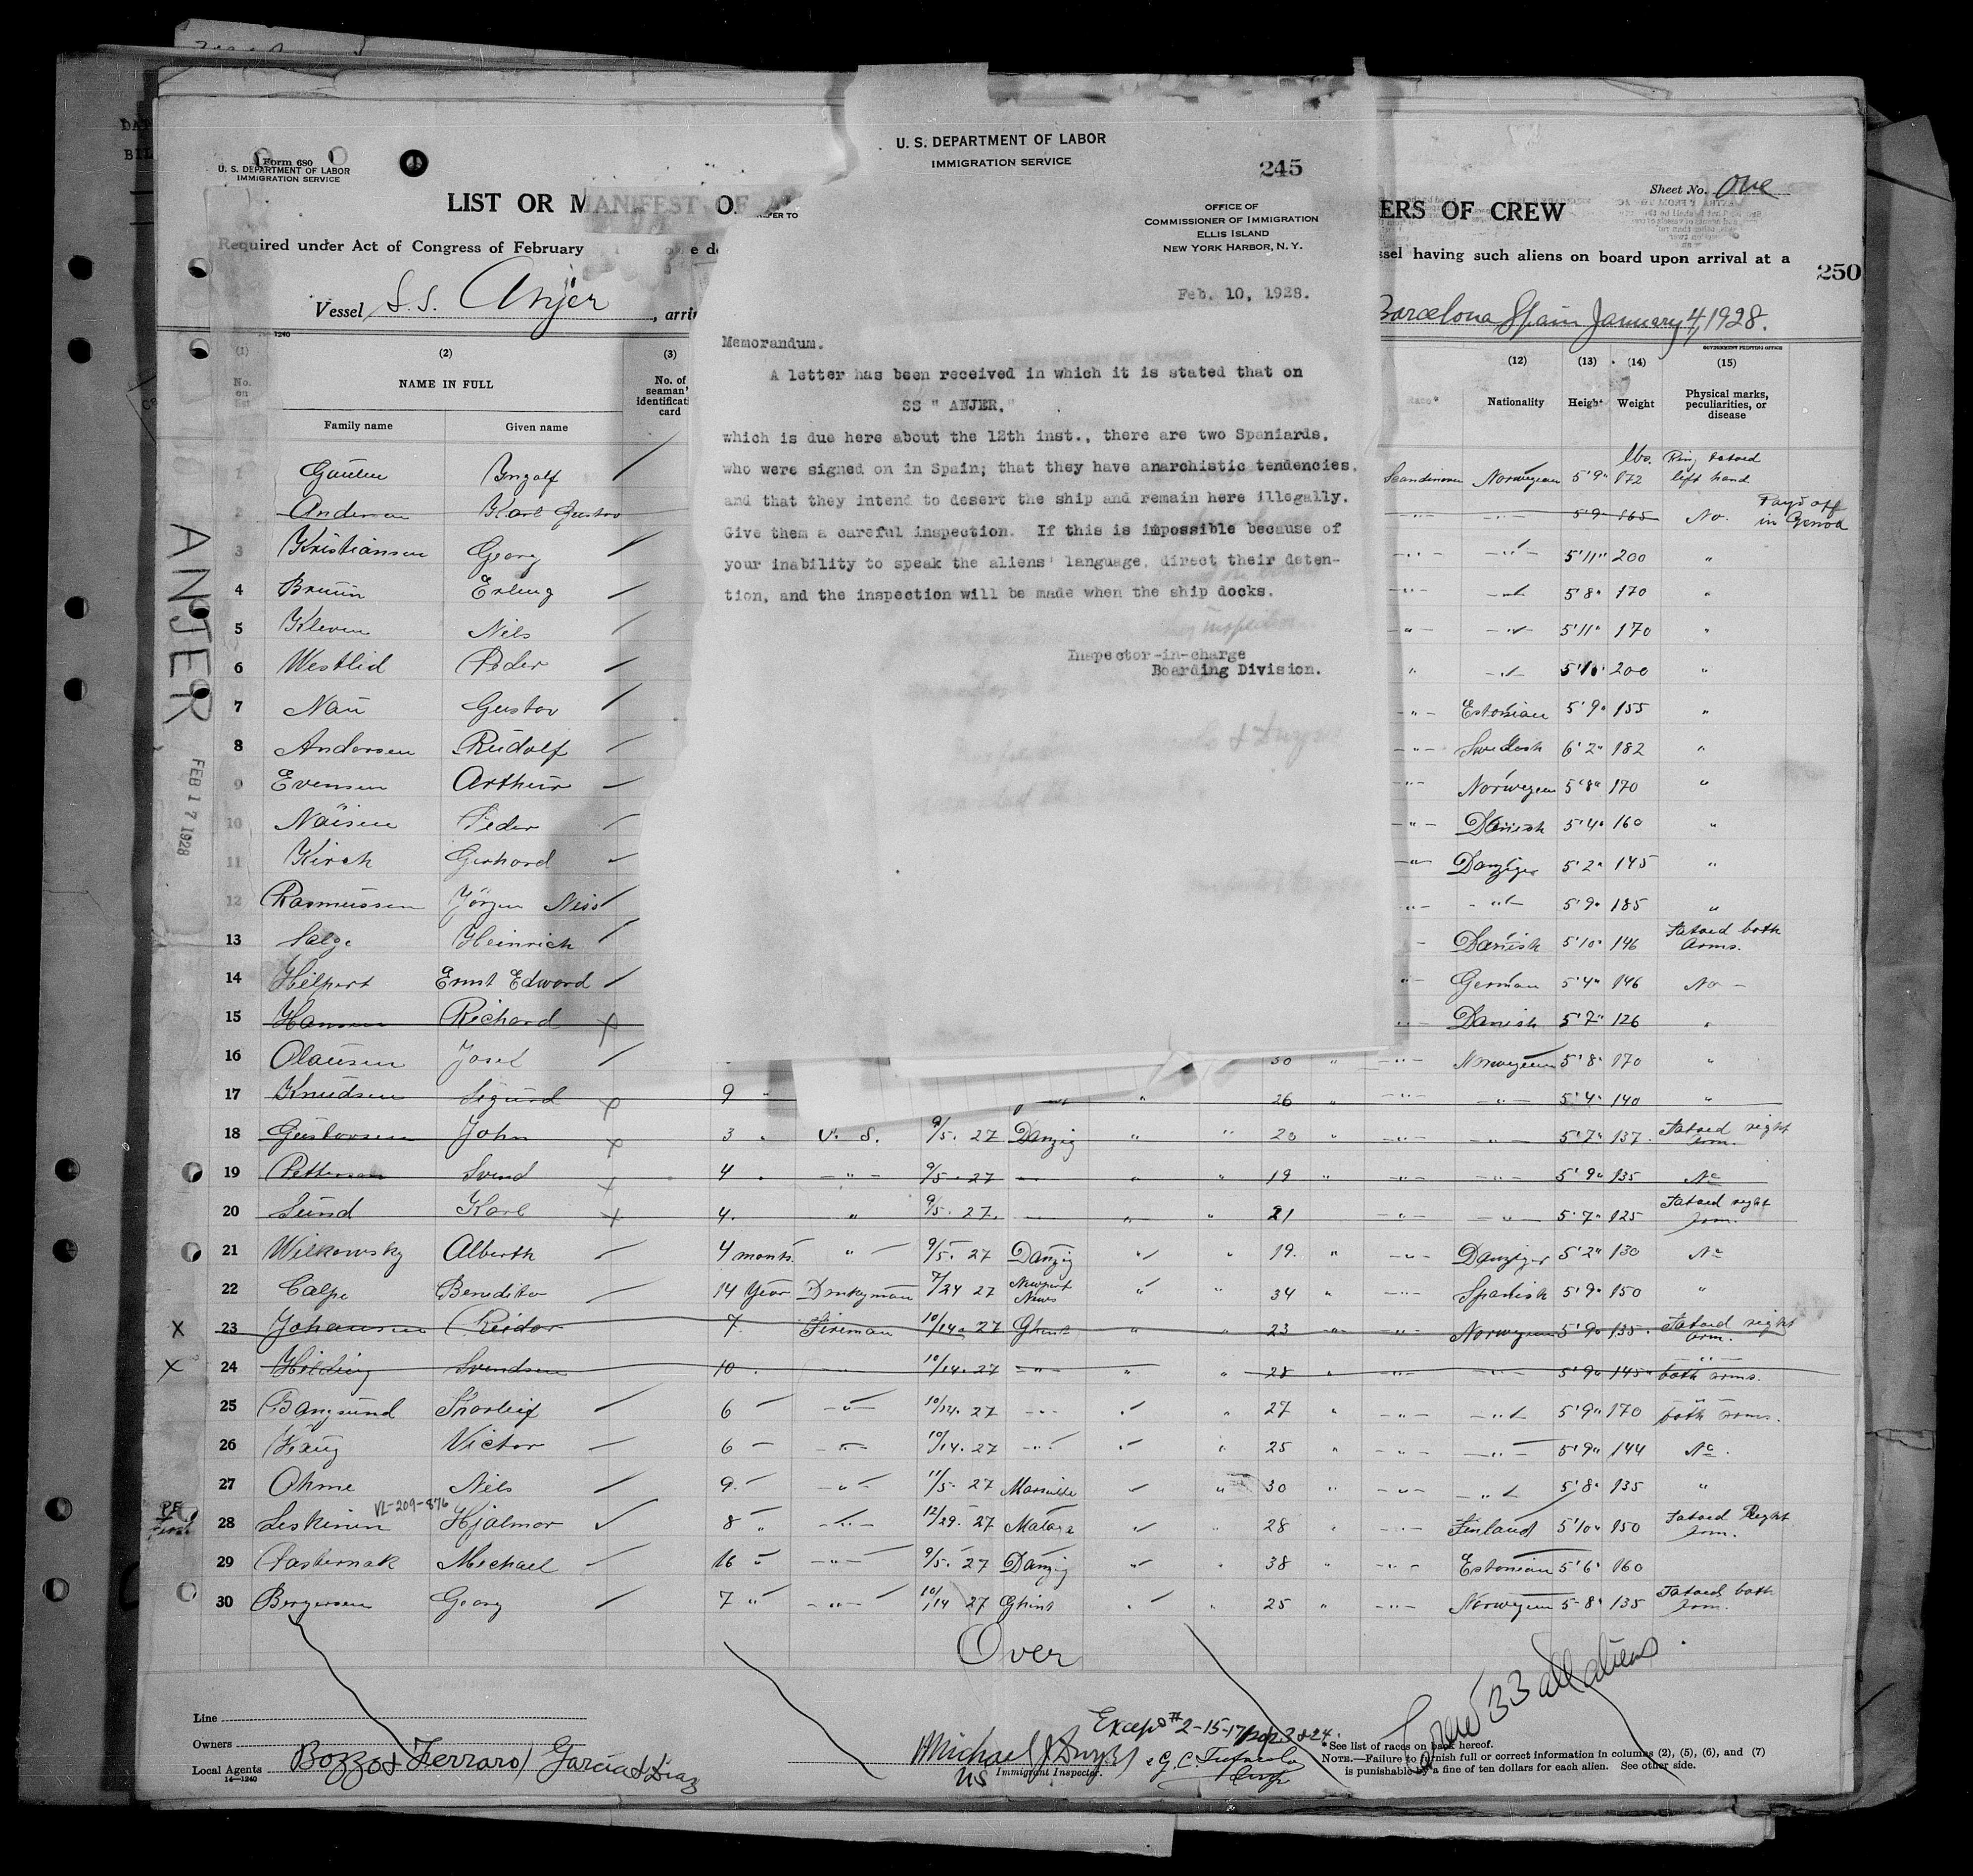 Form 680
U. S. DEPARTMENT OF LABOR
IMMIGRATION SERVICE
LIST OR MANIFEST OF
ERS OF CREW
Sheet No. One
Required under Act of Congress of February
ssel having such aliens on board upon arrival at a
250
Vessel S.S. Anjer, arri
Barcelona Spain January 4, 1928.
U. S. DEPARTMENT OF LABOR
IMMIGRATION SERVICE
245
OFFICE OF
COMMISSIONER OF IMMIGRATION
ELLIS ISLAND
NEW YORK HARBOR, N. Y.
Feb. 10, 1928.
Memorandum.
A letter has been received in which it is stated that on
SS " ANJER,"
which is due here about the 12th inst., there are two Spaniards,
who were signed on in Spain; that they have anarchistic tendencies,
and that they intend to desert the ship and remain here illegally.
Give them a careful inspection. If this is impossible because of
your inability to speak the aliens' language, direct their deten-
tion, and the inspection will be made when the ship docks.
Inspector-in-charge
Boarding Division.
(1) (2) (3) (12) (13) (14) (15)
GOVERNMENT PRINTING OFFICE
NAME IN FULL
Family name Given name
No. of seaman's identificati card
Race* Nationality Height Weight Physical marks, peculiarities, or disease
1 Ingolf Scandinavian Norwegian 5'9" 172 lbs. Ring tatoed left hand
2 Karl Gustav 5'9 165 No. Pays off in Genoa
3 Kristiansen Georg 5'11" 200 "
4 Bruun Erling 5'8" 170 "
5 Kleven Nils 5'11" 170 "
6 Westlid Peder 200 "
7 Nau Gustav Estonian 5'9" 155 "
8 Andersen Rudolf Swedish 6'2" 182 "
9 Evensen Arthur Norwegian 5'8" 170 "
10 Peder Danish 5'4" 160 "
11 Kirch Gerhard Danziger 5'2" 145 "
12 Rasmussen Jörgen Niss " 5'9" 185 "
13 Heinrich Danish 5'10" 146 Tatoed both arms.
14 Hilpert Ernst Edward German 5'4" 146 No -
15 Hansen Richard Danish 5'7" 126 "
16 Olausen Josef 30 " Norwegian 5'8" 170 "
17 Knudsen Sigurd 9 " 26 " 5'4" 140 "
18 Gustavsen John 3 " 9/5. 27 Danzig " " 20 5'7" 137 Tatoed right arm.
19 Pettersen Svend 4 " " 9/5. 27 " " 19 " 5'9" 135 No
20 Sund Karl 4. " 9/5. 27. " " 21 5'7" 125 Tatoed right arm.
21 Wilkowsky Alberth 4 months " 9/5. 27 Danzig " " 19. " Danziger 5'2" 130 No
22 Calpe Benedito 14 Year Donkyman 7/24 27 Newport News " " 34 " Spanish 5'9" 150 "
X 23 Johansen Reidar 7 Fireman 10/14. 27 Ghent " " 23 Norwegian 5'9" 135. Tatoed right arm.
X 24 Hilding Svendsen 10 " 10/14. 27 " " " 28 " 5'9" 145 " both arms.
25 Bangsund Thorleif 6 " 10/14. 27 " " " 27 " 5'9" 170 " both arms.
26 Haug Victor 6 " 10/14. 27 " " " 25 " 5'9" 144 No.
27 Ohme Nils 9 " 11/5. 27 Marseille " 30 " 5'8" 135 "
VL-209-876
28 Leskinen Hjalmar 8 " 12/29. 27 " 28 " Finland 5'10" 150 Tatoed Right arm.
29 Pasternak Michael 16 " 9/5. 27 Danzig " 38 " Estonian 5'6" 160
30 Bergersen Georg 7 " 10/14 27 Ghent " 25 " Norwegian 5-8" 135 Tatoed both arm.
ANJER
FEB 17 1928
Over
Crew 33 all aliens
Line
Owners
Local Agents Bozzo & Ferraro / Garcia & Diaz
14—1240
Michael J Dwyer
US Immigrant Inspector.
*See list of races on back hereof.
NOTE.—Failure to furnish full or correct information in columns (2), (5), (6), and (7)
is punishable by a fine of ten dollars for each alien. See other side.